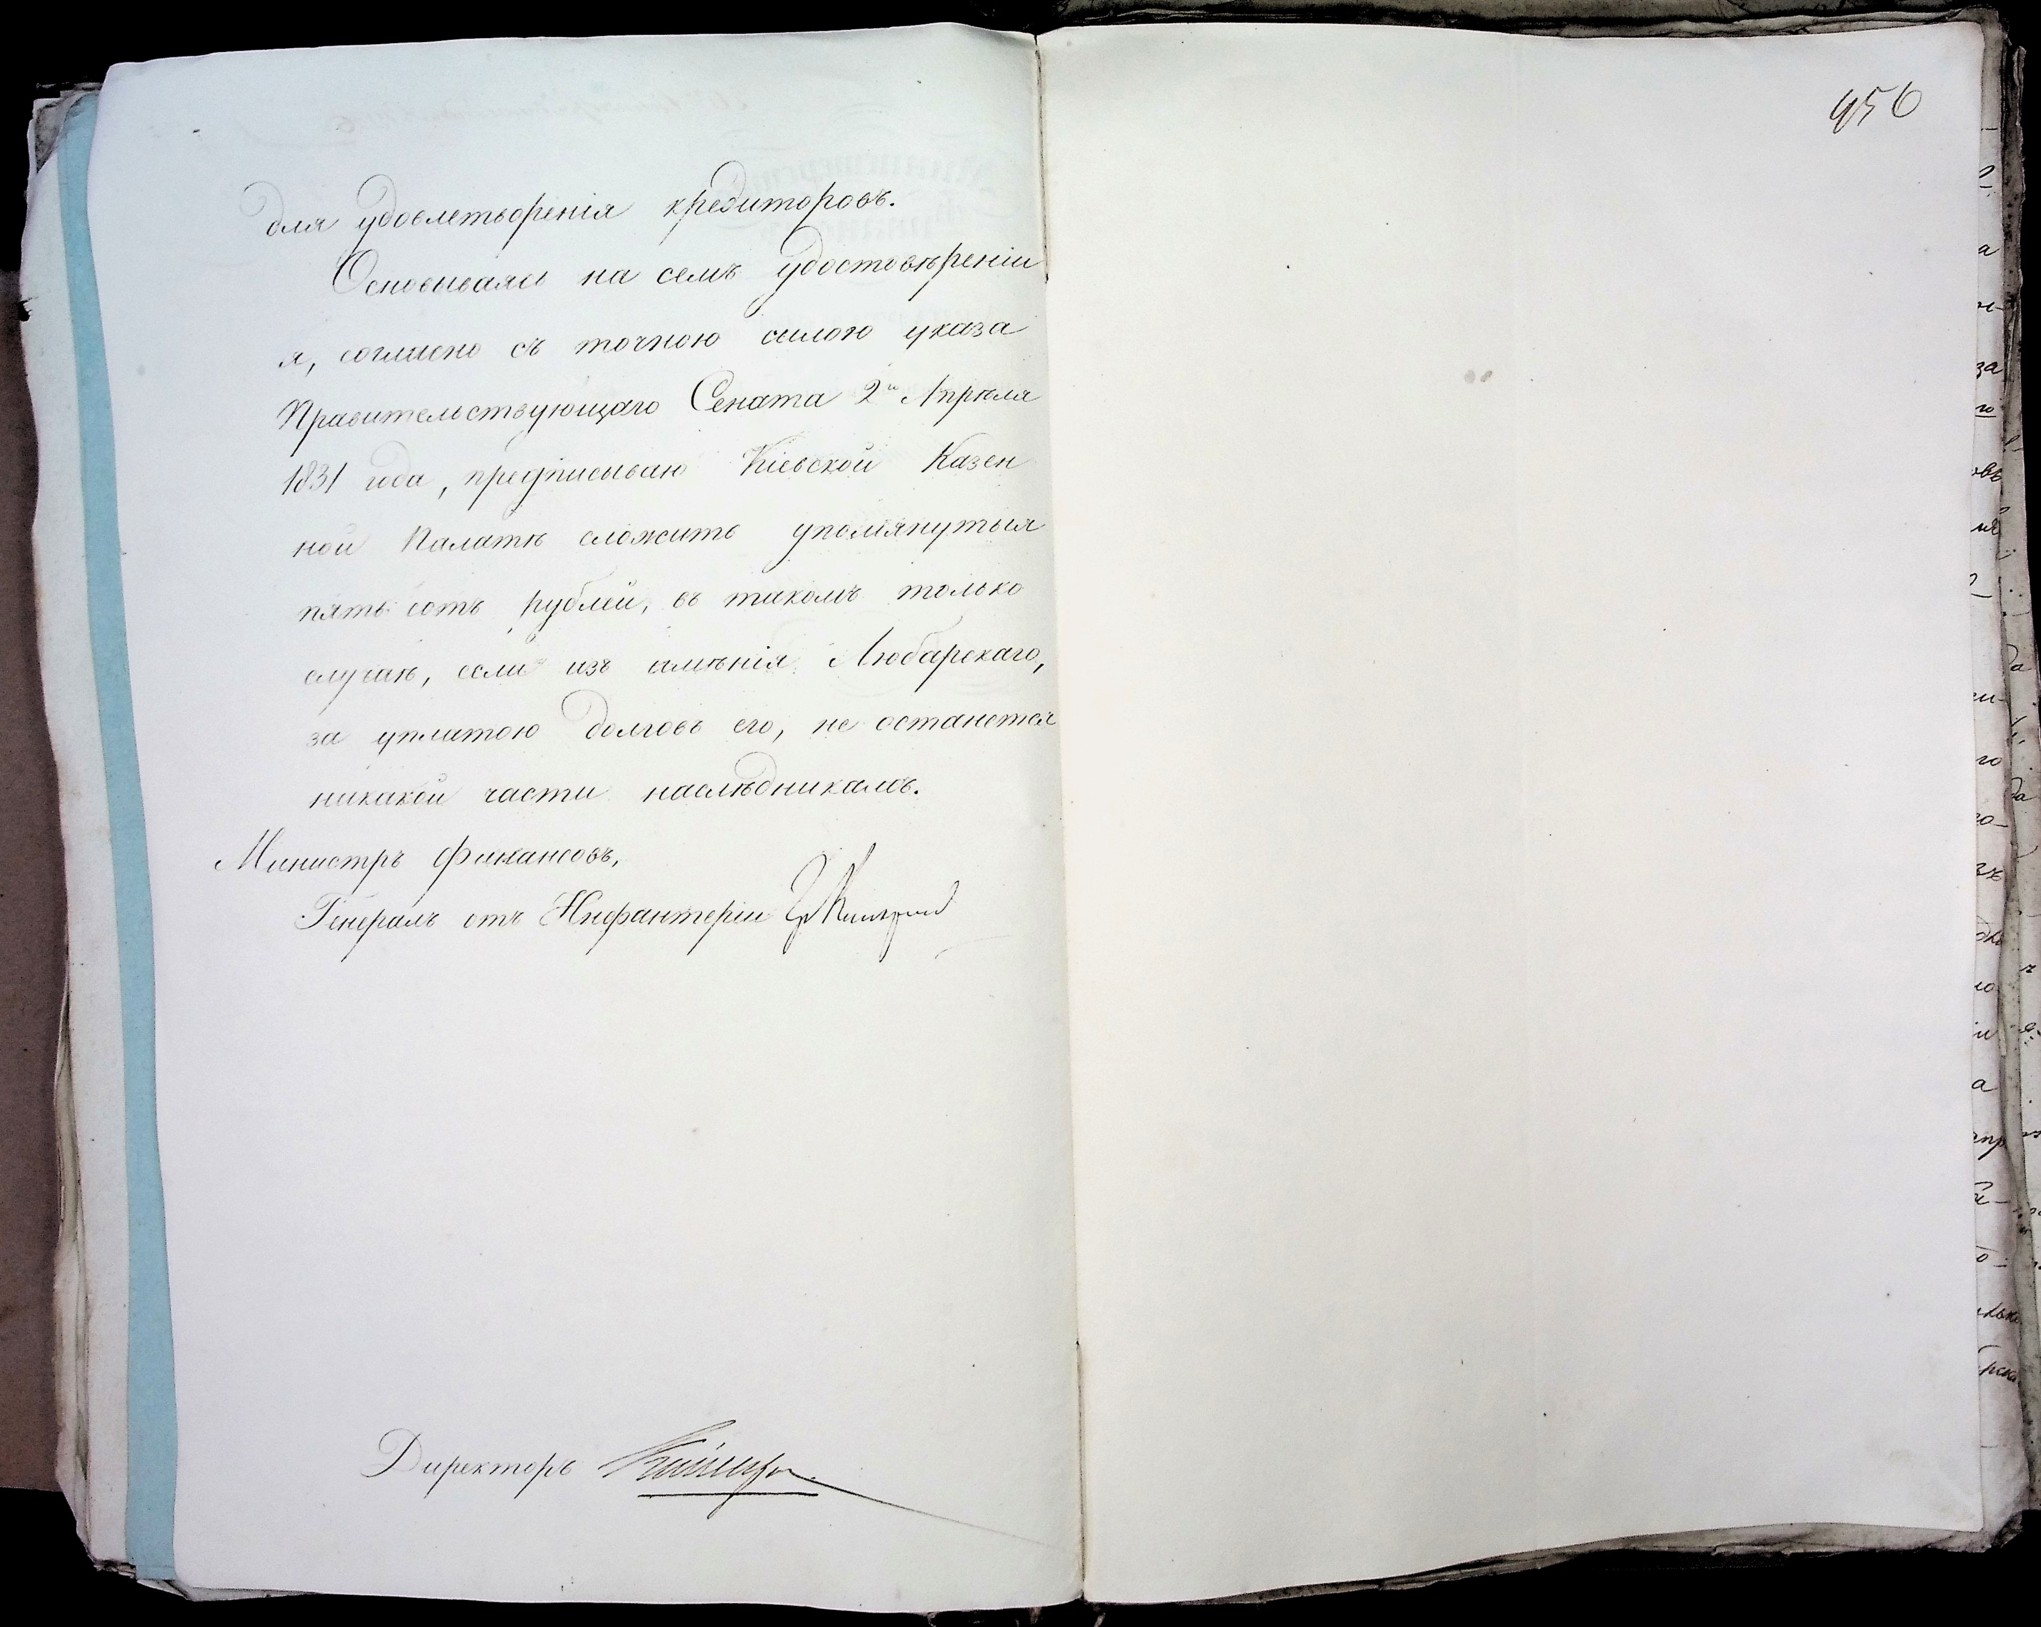 956
для удовлетворенія кредиторовъ.
Основываясь на семъ удостовѣреніи
я, согласно съ точною силою указа
Правительствующаго Сената 2го Апрѣля
1831 года, предписываю Кіевской Казен
ной Палатѣ сложить упомянутыя
пять сотъ рублей, въ такомъ только
случаѣ, если изъ имѣнія Любарскаго,
за уплатою долговъ его, не останется
никакой части наслѣдникамъ.
Министръ Финансовъ,
Генералъ отъ Инфантеріи
Директоръ